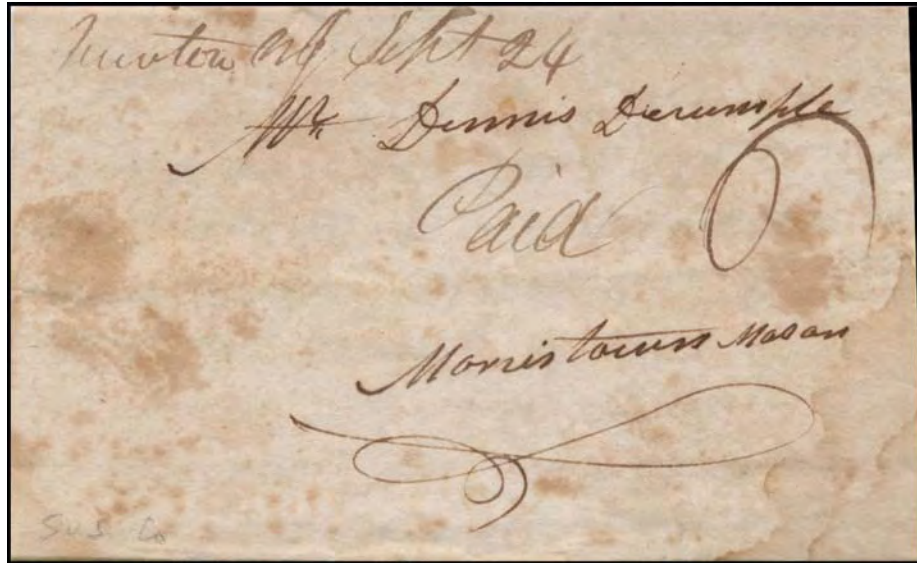 Newton NJ Sept 24
Mr. Dennis Derumple
Paid 6
Morristown Mason
SUS Co